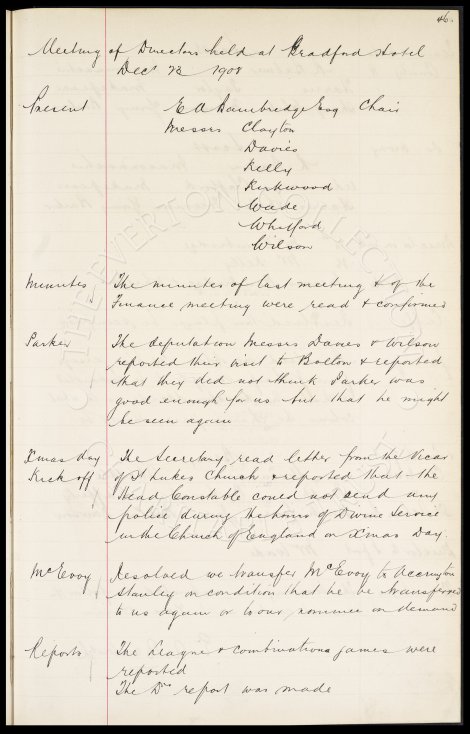 46.
Meeting of Directors held at Bradford Hotel
Decr 22 1908
Present E A Bainbridge Esq Chair
Messrs Clayton
Davies
Kelly
Kirkwood
Wade
Whitford
Wilson
Minutes The minutes of last meeting & of the
Finance meeting were read & confirmed
Parker The deputation Messrs Davies & Wilson
reported their visit to Bolton & reported
that they did not think Parker was
good enough for us but that he might
be seen again
Xmas day The Secretary read letter from the Vicar
Kick off of St Lukes Church & reported that the
Head Constable could not send any
police during the hours of Divine Service
in the Church of England on Xmas Day.
McEvoy Resolved we transfer McEvoy to Accrington
Stanley on condition that he be transferred
to us again or to our nominee on demand
Reports The League & combination games were
reported
The Drs report was made
THE EVERTON COLLECTION